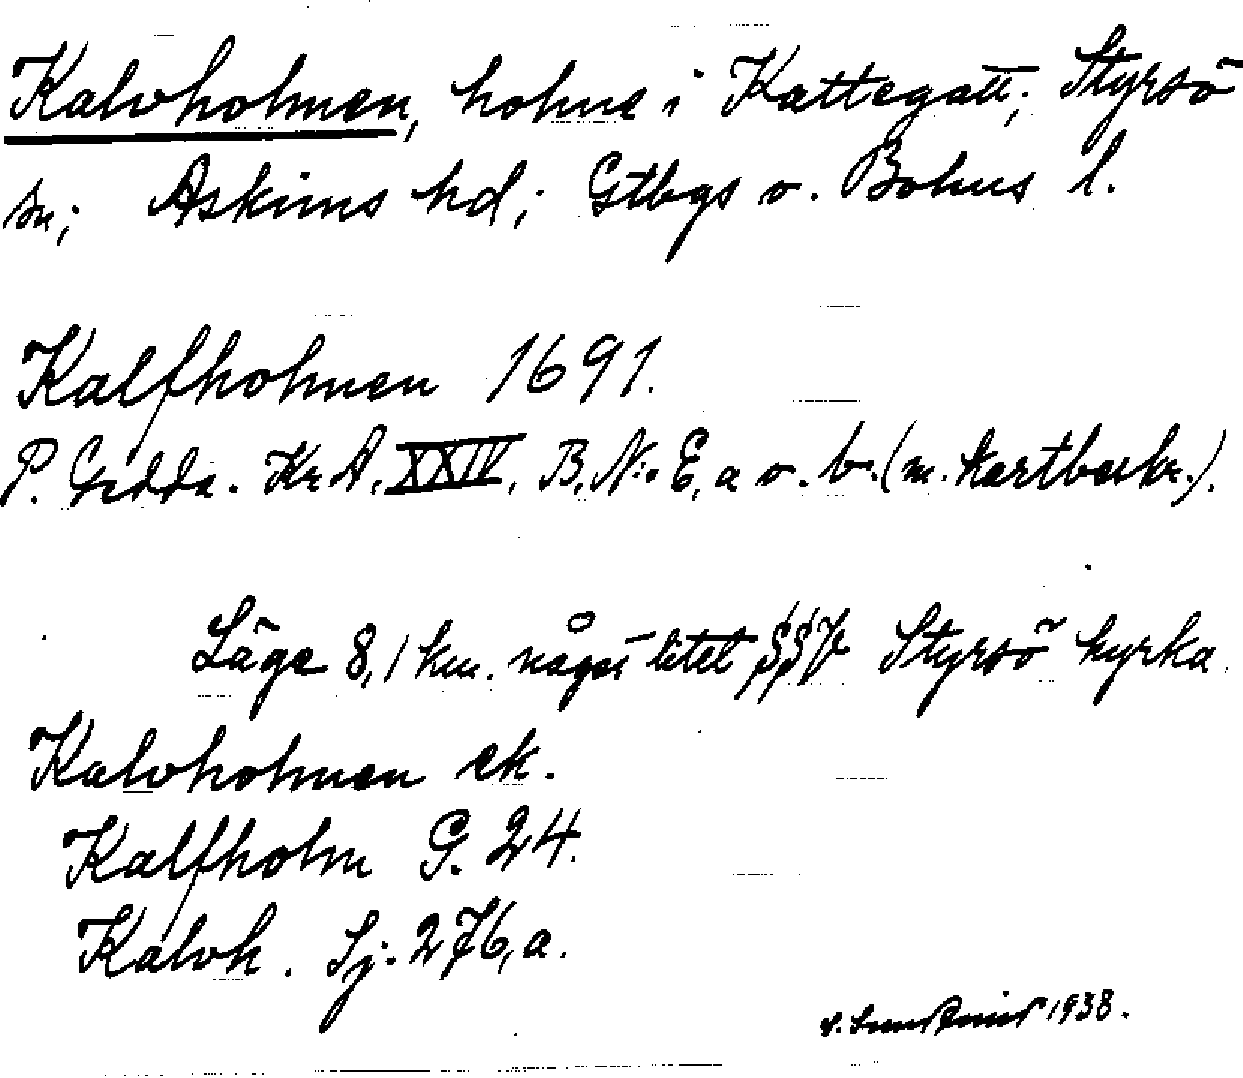 Kalvholmen, holme i Kattegatt; Styrsö
sn; Askims hd; Gtbgs o. Bohus l.
Kalfholmen 1691.
P. Gedda. Kr A. XXIV, B, N:o E, a o. b. (m. kartbeskr.).
Läge 8,1 km. något litet SSV Styrsö kyrka
Kalvholmen ek.
Kalfholm G. 24.
Kalvh. Sj. 276,a.
1938.